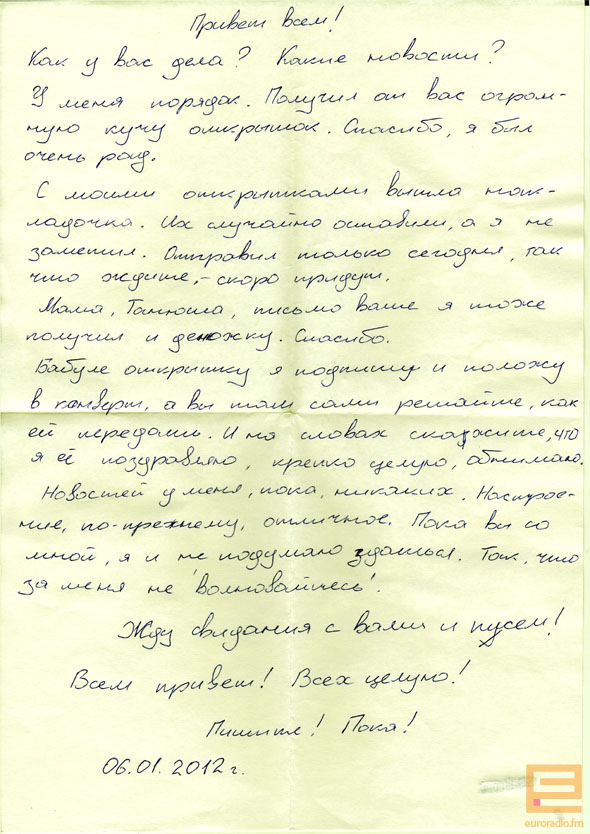 Привет всем!
Как у вас дела? Какие новости?
У меня порядок. Получил от вас огром-
ную кучу открыток. Спасибо, я был
очень рад.
С моими открытками вышла нак-
ладочка. Их случайно оставили, а я не
заметил. Отправил только сегодня, так
что ждите, - скоро придут.
Мама, Танюша, письмо ваше я тоже
получил и денюжку. Спасибо.
Бабуле открытку я подпишу и положу
в конверт, а вы там сами решайте, как
ей передать. И на словах скажите, что
я её поздравляю, крепко целую, обнимаю.
Новостей у меня, пока, никаких. Настрое-
ние, по-прежнему, отличное. Пока вы со
мной, я и не подумаю здаться. Так, что
за меня не 'волновайтесь'.
Жду свидания с вами и
Всем привет! Всех целую!
Пишите! Пока!
06.01.2012г.
euroradio.fm